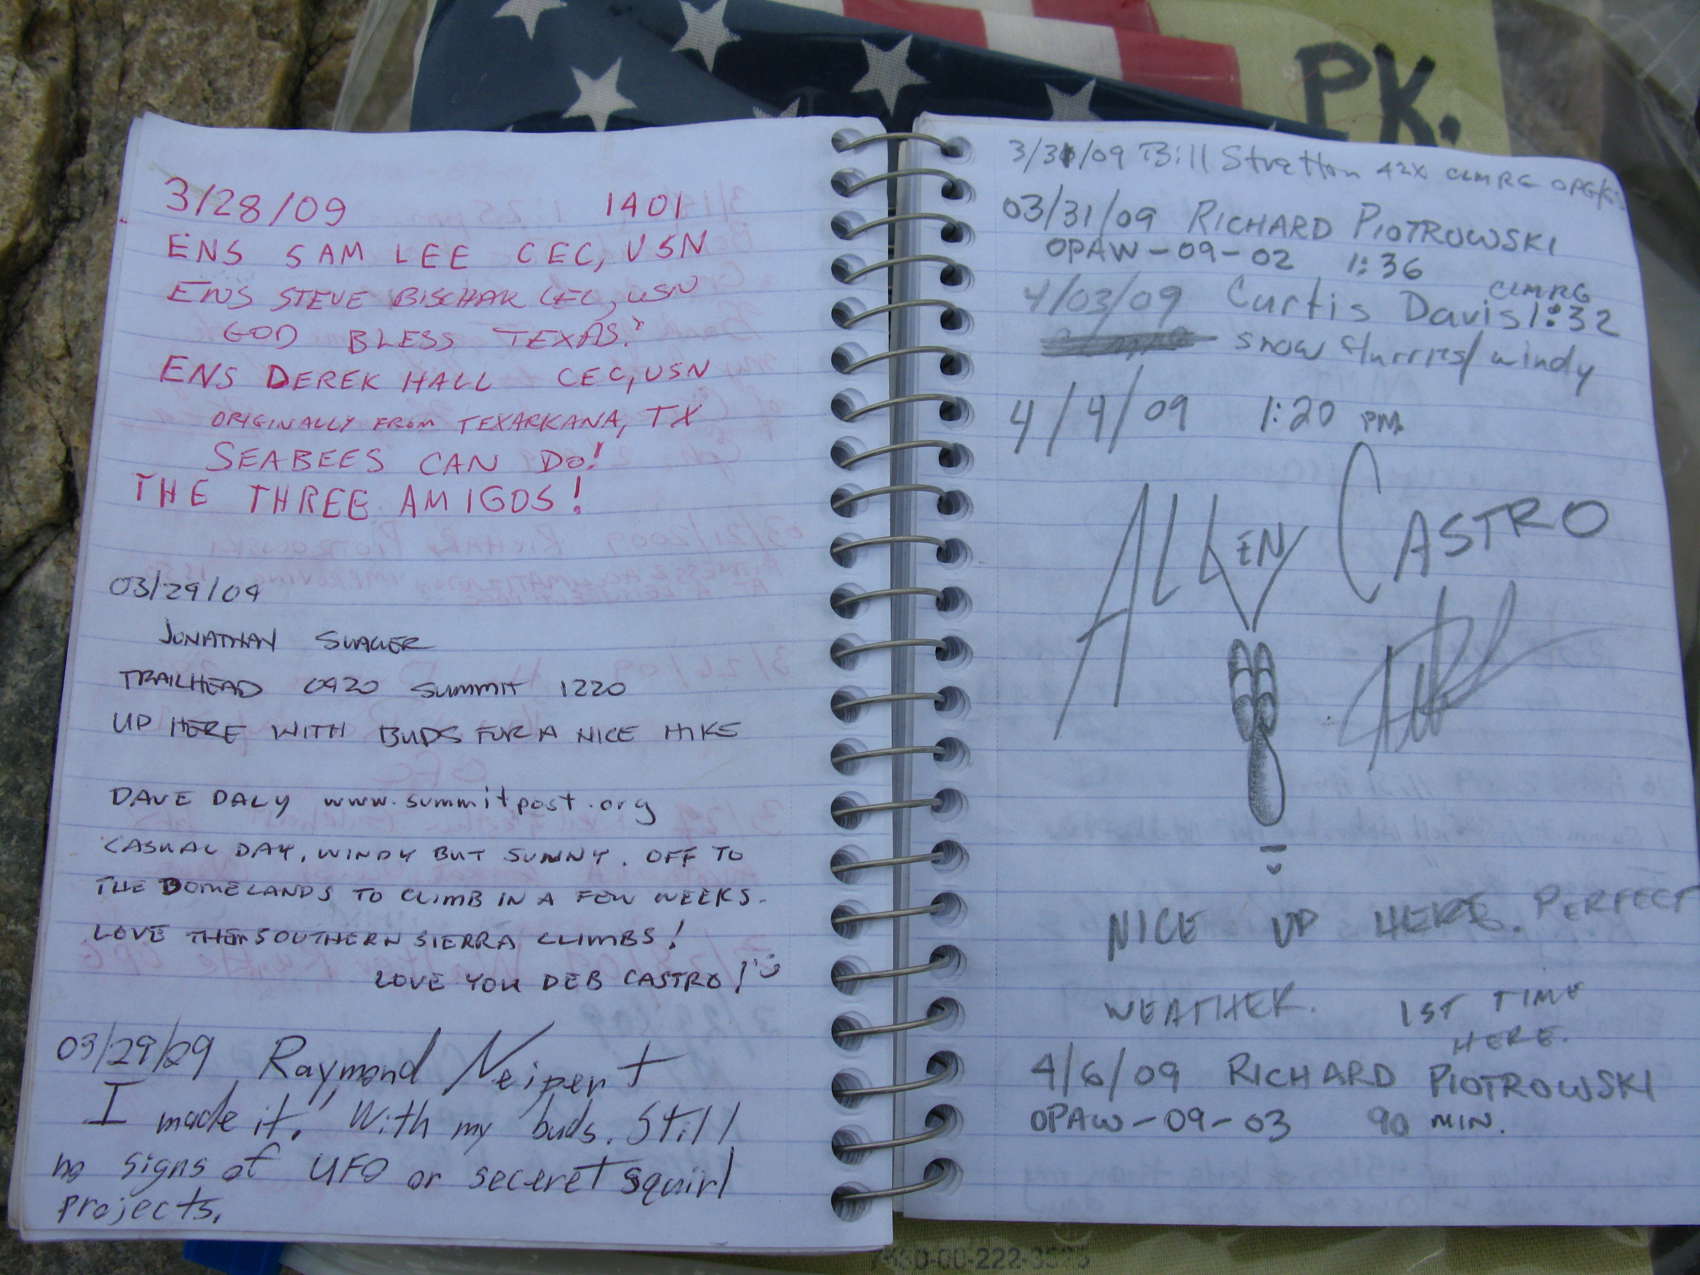 PK.
3/28/09 1401
ENS SAM LEE CEC, USN
ENS STEVE BISCHAK CEC, USN
GOD BLESS TEXAS!
ENS DEREK HALL CEC, USN
ORIGINALLY FROM TEXARKANA, TX
SEABEES CAN DO!
THE THREE AMIGOS!
03/29/09
JONATHAN
TRAILHEAD 0920 SUMMIT 1220
UP HERE WITH BUDS FOR A NICE HIKE
DAVE DALY www.summitpost.org
CASUAL DAY, WINDY BUT SUNNY. OFF TO
THE DOMELANDS TO CLIMB IN A FEW WEEKS.
LOVE THEM SOUTHERN SIERRA CLIMBS!
LOVE YOU DEB CASTRO!
03/29/29 Raymond Neipert
I made it, With my buds. Still
no signs of UFO or seceret squirl
projects.
3/31/09 Bill Stratton 42X CLMRG
03/31/09 RICHARD PIOTROWSKI
OPAW-09-02 1:36
CLMRG
4/03/09 Curtis Davis 1:32
snow flurries/windy
4/4/09 1:20 PM
ALLEN CASTRO
NICE UP HERE. PERFECT
WEATHER. 1ST TIME
HERE.
4/6/09 RICHARD PIOTROWSKI
OPAW-09-03 90 MIN.